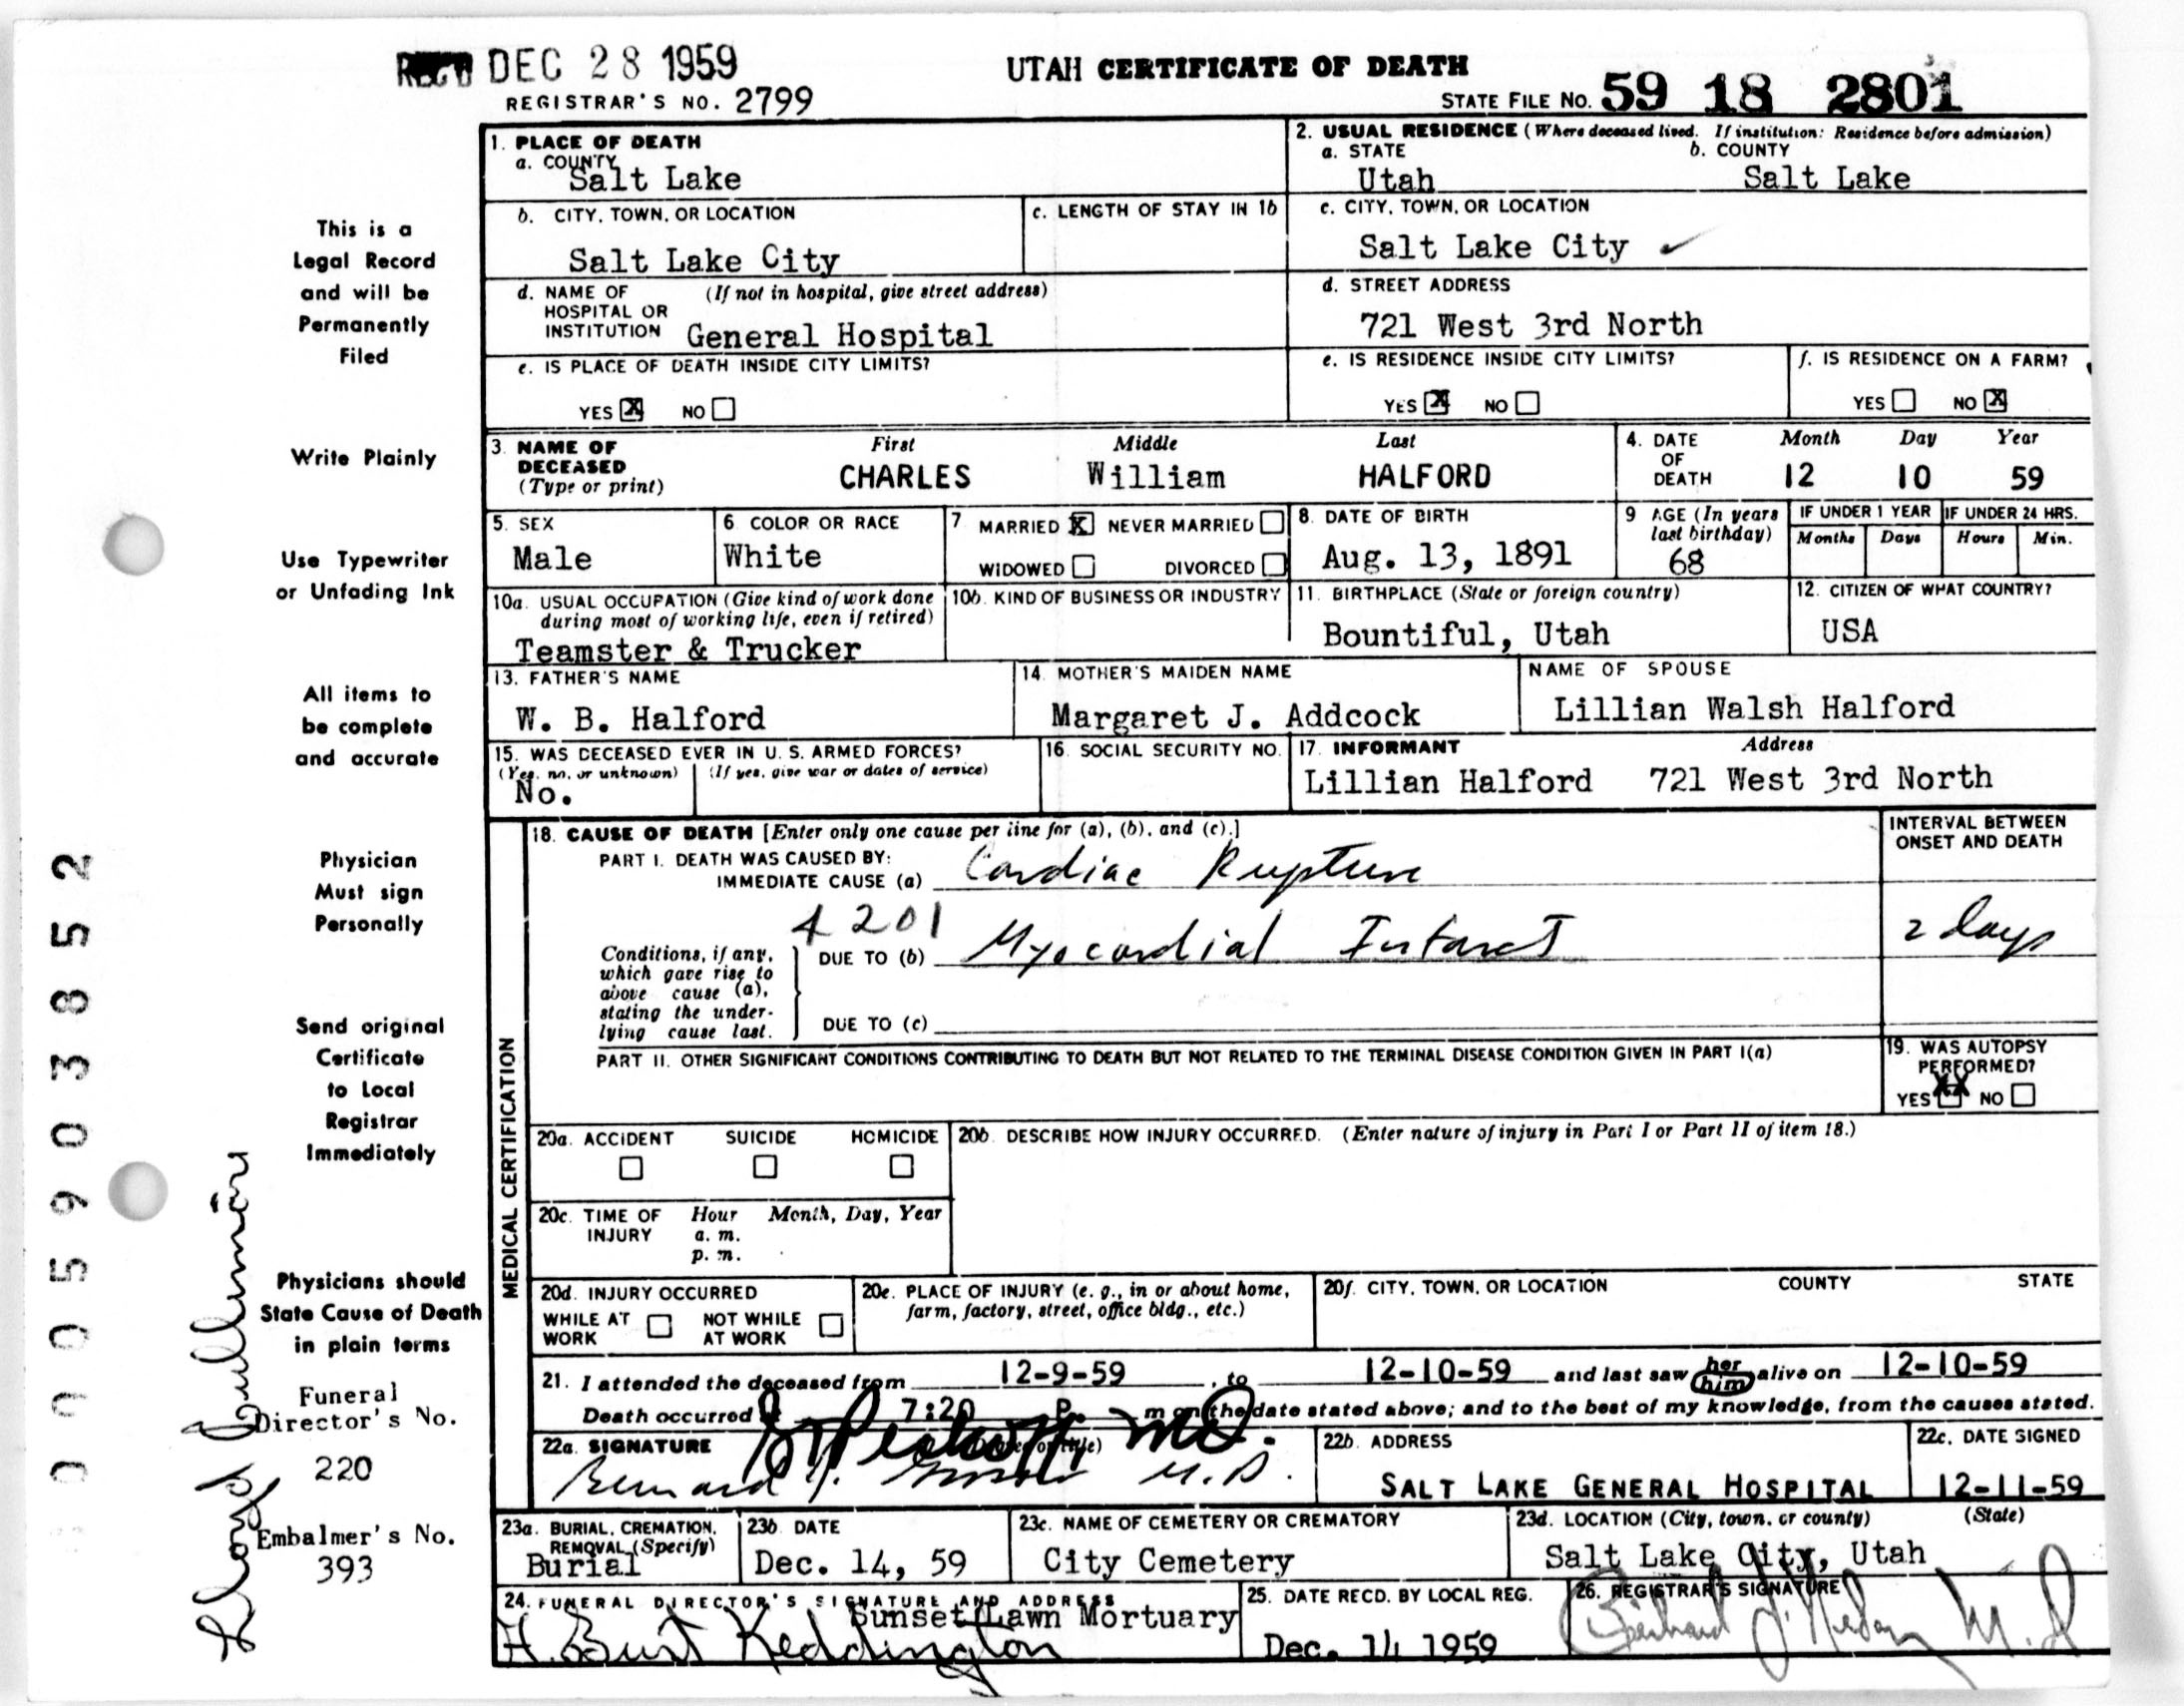 REC'D DEC 28 1959
UTAH CERTIFICATE OF DEATH
REGISTRAR'S NO. 2799
STATE FILE NO. 59 18 2801
1. PLACE OF DEATH
a. COUNTY
Salt Lake
2. USUAL RESIDENCE (Where deceased lived. If institution: Residence before admission)
a. STATE b. COUNTY
Utah Salt Lake
b. CITY, TOWN, OR LOCATION
Salt Lake City
c. LENGTH OF STAY IN 1b
c. CITY, TOWN, OR LOCATION
Salt Lake City
d. NAME OF (If not in hospital, give street address)
HOSPITAL OR
INSTITUTION General Hospital
d. STREET ADDRESS
721 West 3rd North
e. IS PLACE OF DEATH INSIDE CITY LIMITS?
YES X NO
e. IS RESIDENCE INSIDE CITY LIMITS?
YES X NO
f. IS RESIDENCE ON A FARM?
YES NO X
3. NAME OF DECEASED (Type or print)
First Middle Last
CHARLES William HALFORD
4. DATE OF DEATH
Month Day Year
12 10 59
5. SEX
Male
6. COLOR OR RACE
White
7. MARRIED X NEVER MARRIED
WIDOWED DIVORCED
8. DATE OF BIRTH
Aug. 13, 1891
9. AGE (In years last birthday)
68
IF UNDER 1 YEAR IF UNDER 24 HRS.
Months Days Hours Min.
10a. USUAL OCCUPATION (Give kind of work done
during most of working life, even if retired)
Teamster & Trucker
10b. KIND OF BUSINESS OR INDUSTRY
11. BIRTHPLACE (State or foreign country)
Bountiful, Utah
12. CITIZEN OF WHAT COUNTRY?
USA
13. FATHER'S NAME
W. B. Halford
14. MOTHER'S MAIDEN NAME
Margaret J. Addcock
NAME OF SPOUSE
Lillian Walsh Halford
15. WAS DECEASED EVER IN U. S. ARMED FORCES?
(Yes, no, or unknown) (If yes, give war or dates of service)
No.
16. SOCIAL SECURITY NO.
17. INFORMANT Address
Lillian Halford 721 West 3rd North
MEDICAL CERTIFICATION
18. CAUSE OF DEATH [Enter only one cause per line for (a), (b), and (c).]
INTERVAL BETWEEN
ONSET AND DEATH
PART I. DEATH WAS CAUSED BY:
IMMEDIATE CAUSE (a) Cardiac Rupture
4201
Conditions, if any,
which gave rise to
above cause (a),
stating the under-
lying cause last.
DUE TO (b) Myocardial Infarct
2 days
DUE TO (c)
PART II. OTHER SIGNIFICANT CONDITIONS CONTRIBUTING TO DEATH BUT NOT RELATED TO THE TERMINAL DISEASE CONDITION GIVEN IN PART I(a)
19. WAS AUTOPSY
PERFORMED?
YES XX NO
20a. ACCIDENT SUICIDE HOMICIDE
20b. DESCRIBE HOW INJURY OCCURRED. (Enter nature of injury in Part I or Part II of item 18.)
20c. TIME OF INJURY
Hour Month, Day, Year
a. m.
p. m.
20d. INJURY OCCURRED
WHILE AT WORK NOT WHILE AT WORK
20e. PLACE OF INJURY (e. g., in or about home,
farm, factory, street, office bldg., etc.)
20f. CITY, TOWN, OR LOCATION COUNTY STATE
21. I attended the deceased from 12-9-59, to 12-10-59 and last saw her him alive on 12-10-59
Death occurred at 7:20 P. m on the date stated above; and to the best of my knowledge, from the causes stated.
22a. SIGNATURE (Degree or title) M.D.
Bernard M.D.
22b. ADDRESS
SALT LAKE GENERAL HOSPITAL
22c. DATE SIGNED
12-11-59
23a. BURIAL, CREMATION,
REMOVAL (Specify)
Burial
23b. DATE
Dec. 14, 59
23c. NAME OF CEMETERY OR CREMATORY
City Cemetery
23d. LOCATION (City, town, or county) (State)
Salt Lake City, Utah
24. FUNERAL DIRECTOR'S SIGNATURE AND ADDRESS
Sunset Lawn Mortuary
H. Burt Keddington
25. DATE RECD. BY LOCAL REG.
Dec. 14 1959
26. REGISTRAR'S SIGNATURE
M.D.
This is a
Legal Record
and will be
Permanently
Filed
Write Plainly
Use Typewriter
or Unfading Ink
All items to
be complete
and accurate
Physician
Must sign
Personally
Send original
Certificate
to Local
Registrar
Immediately
Physicians should
State Cause of Death
in plain terms
Funeral
Director's No.
220
Embalmer's No.
393
Lloyd
000590 3852